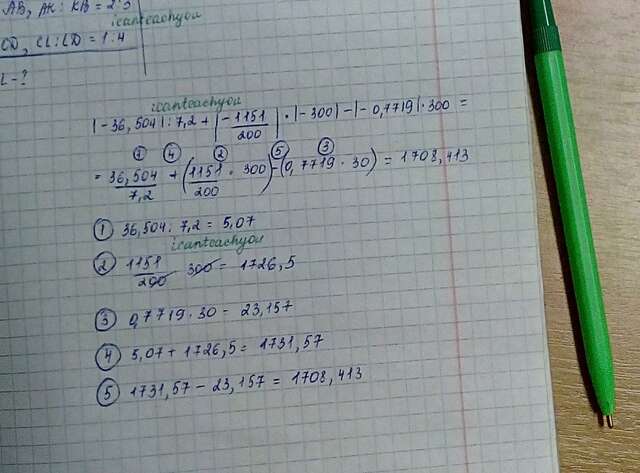 AB, AK : KB = 2:3
icanteachyou
CD, CL:LD = 1:4
L - ?
icanteachyou
|-36,504| : 7,2 + |-1151/200| · |-300| - |-0,7719| · 300 =
① ④ ② ⑤ ③
= 36,504/7,2 + (1151/200 · 300) - (0,7719 · 30) = 1708,413
① 36,504 : 7,2 = 5,07
icanteachyou
② 1151/200 300 = 1726,5
③ 0,7719 · 30 = 23,157
④ 5,07 + 1726,5 = 1731,57
⑤ 1731,57 - 23,157 = 1708,413